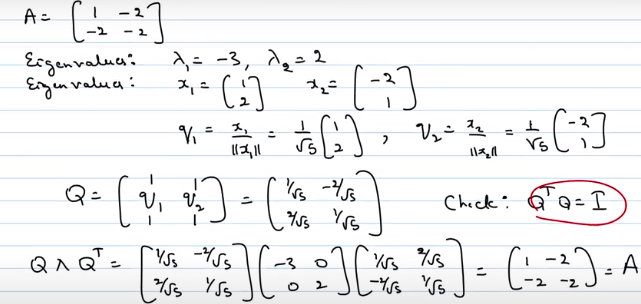 A = [1 -2; -2 -2]
Eigenvalues: λ₁ = -3, λ₂ = 2
Eigenvalues: x₁ = (1; 2) x₂ = [-2; 1]
q₁ = x₁/||x₁|| = 1/√5 (1; 2), q₂ = x₂/||x₂|| = 1/√5 (-2; 1)
Q = [q₁ q₂] = [1/√5 -2/√5; 2/√5 1/√5] Check: QᵀQ = I
Q Λ Qᵀ = [1/√5 -2/√5; 2/√5 1/√5] (-3 0; 0 2) (1/√5 2/√5; -2/√5 1/√5) = (1 -2; -2 -2) = A